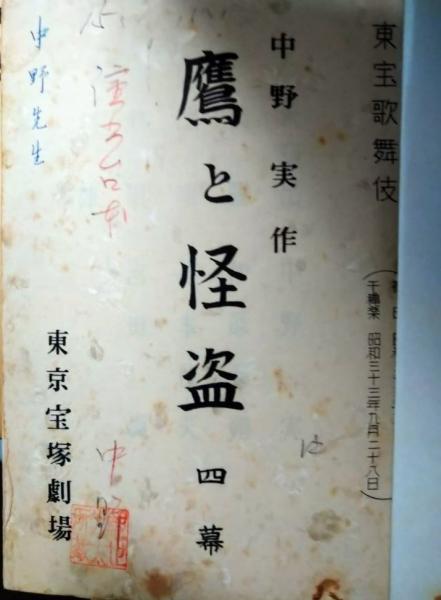 東宝歌舞伎
(千穐楽 昭和三十三年九月二十八日)
中野実作
鷹と怪盗 四幕
東京宝塚劇場
中野先生
中野